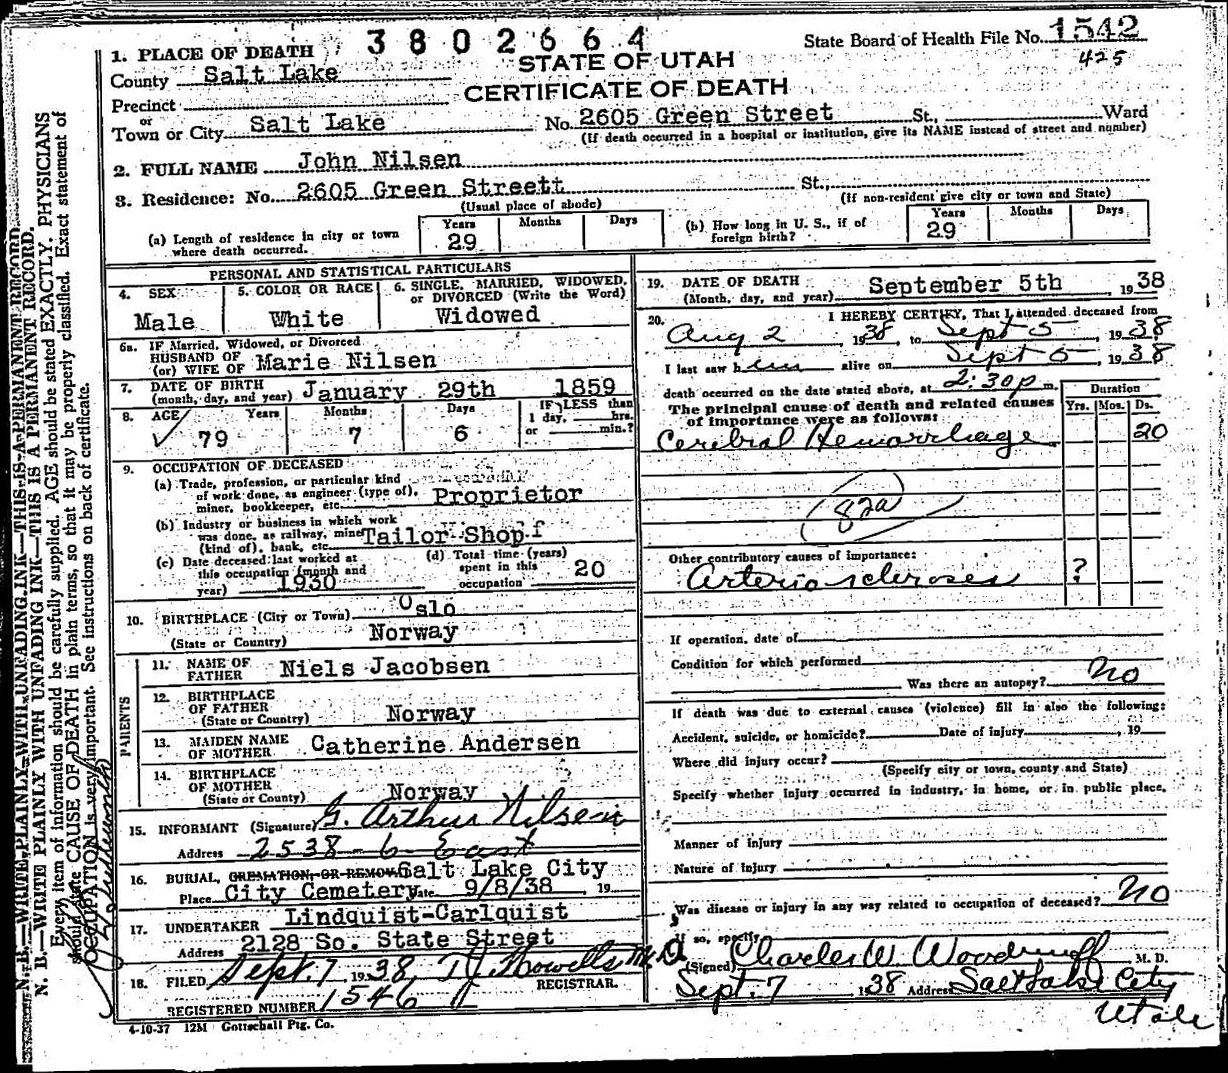 3802664
State Board of Health File No. 1542
425
STATE OF UTAH
CERTIFICATE OF DEATH
1. PLACE OF DEATH
County Salt Lake
Precinct
or
Town or City Salt Lake No. 2605 Green Street St., Ward
(If death occurred in a hospital or institution, give its NAME instead of street and number)
2. FULL NAME John Nilsen
3. Residence: No. 2605 Green Streett St.,
(Usual place of abode) (If non-resident give city or town and State)
(a) Length of residence in city or town where death occurred. Years 29 Months Days
(b) How long in U. S., if of foreign birth? Years 29 Months Days
PERSONAL AND STATISTICAL PARTICULARS
4. SEX Male
5. COLOR OR RACE White
6. SINGLE, MARRIED, WIDOWED, or DIVORCED (Write the Word) Widowed
6a. IF Married, Widowed, or Divorced
HUSBAND OF
(or) WIFE OF Marie Nilsen
7. DATE OF BIRTH
(month, day, and year) January 29th 1859
8. AGE Years 79 Months 7 Days 6 IF LESS than 1 day, hrs. or min.?
9. OCCUPATION OF DECEASED
(a) Trade, profession, or particular kind
of work done, as engineer (type of),
miner, bookkeeper, etc. Proprietor
(b) Industry or business in which work
was done, as railway, mine
(kind of), bank, etc. Tailor Shop
(c) Date deceased last worked at
this occupation (month and
year) 1930
(d) Total time (years)
spent in this
occupation 20
10. BIRTHPLACE (City or Town) Oslo
(State or Country) Norway
PARENTS
11. NAME OF FATHER Niels Jacobsen
12. BIRTHPLACE OF FATHER
(State or Country) Norway
13. MAIDEN NAME OF MOTHER Catherine Andersen
14. BIRTHPLACE OF MOTHER
(State or County) Norway
15. INFORMANT (Signature) G. Arthur Nilsen
Address 2538-6 East
16. BURIAL, CREMATION, OR REMOVAL Salt Lake City
Place City Cemetery Date 9/8/38 19
17. UNDERTAKER Lindquist-Carlquist
Address 2128 So. State Street
18. FILED Sept. 7 1938 T J Howells M.D.
REGISTRAR.
REGISTERED NUMBER 1546
4-10-37 12M Gottschall Ptg. Co.
19. DATE OF DEATH
(Month, day, and year) September 5th 1938
20. I HEREBY CERTIFY, That I attended deceased from
Aug 2, 1938, to Sept 5, 1938
I last saw him alive on Sept 5, 1938
death occurred on the date stated above, at 2:30p m.
The principal cause of death and related causes
of importance were as follows:
Duration
Yrs. Mos. Ds.
Cerebral Hemorrhage 20
82a
Other contributory causes of importance:
Arteriosclerosis ?
If operation, date of
Condition for which performed
Was there an autopsy? No
If death was due to external causes (violence) fill in also the following:
Accident, suicide, or homicide? Date of injury , 19
Where did injury occur?
(Specify city or town, county and State)
Specify whether injury occurred in industry, in home, or in public place.
Manner of injury
Nature of injury
Was disease or injury in any way related to occupation of deceased? No
If so, specify
(Signed) Charles W. Woodruff M. D.
Sept. 7 1938 Address Salt Lake City
Utah
N. B.—WRITE PLAINLY WITH UNFADING INK—THIS IS A PERMANENT RECORD.
N. B.—WRITE PLAINLY WITH UNFADING INK—THIS IS A PERMANENT RECORD.
Every item of information should be carefully supplied. AGE should be stated EXACTLY. PHYSICIANS
should state CAUSE OF DEATH in plain terms, so that it may be properly classified. Exact statement of
OCCUPATION is very important. See instructions on back of certificate.